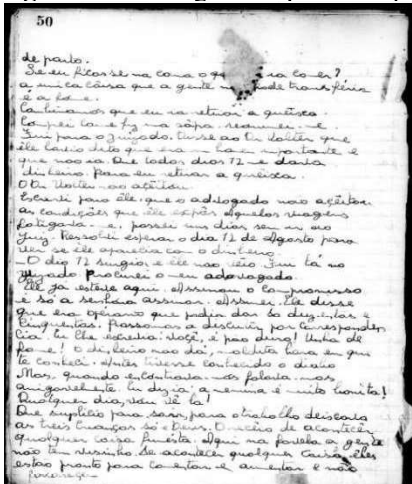 50
de parto.
Se eu ficasse na cama o q ia comer?
a unica coisa que a gente não pode transferir
é a fome.
que eu ia retirar a queixa.
fiz uma sopa.
Fui para o juizado. Disse ao Dr Walter que
ele havia dito que era homem importante e
que não ia. Que todos dias 12 me daria
dinheiro. Para eu retirar a queixa.
O Dr Walter não aceitou.
Escrevi para ele: que o advogado não aceitou
as condições que ele expôs
fatigada - e, passei uns dias sem ir ao
Juiz. Resolvi esperar o dia 12 de Agosto para
ver se ele aparecia com o dinheiro.
- O dia 12 surgiu e ele não veio. Fui lá no
juizado. Procurei o meu advogado.
Ele já esteve aqui. Assinou o compromisso
e só a senhora assinar. Assinei. Ele disse
que era operario que podia dar só duzentos e
cinquentas. Passamos a discutir por corresponden
cia. Eu lhe escrevia: você, é pao duro! Unha de
fome! O dinheiro não dá, maldita hora em que
te conheci. Antes tivesse conhecido o diabo
Mas, quando encontrava-nos falava-mos
amigavelmente. Eu dizia: a menina é muito bonita!
Qualquer dia, vou vê la!
Que suplicio para sair, para o trabalho deixava
as três crianças só e Deus. O receio de acontecer
qualquer coisa funesta. Aqui na favela a gente
não tem visinho. Se acontecer qualquer coisa, eles
estão pronto para comentar e aumentar e não